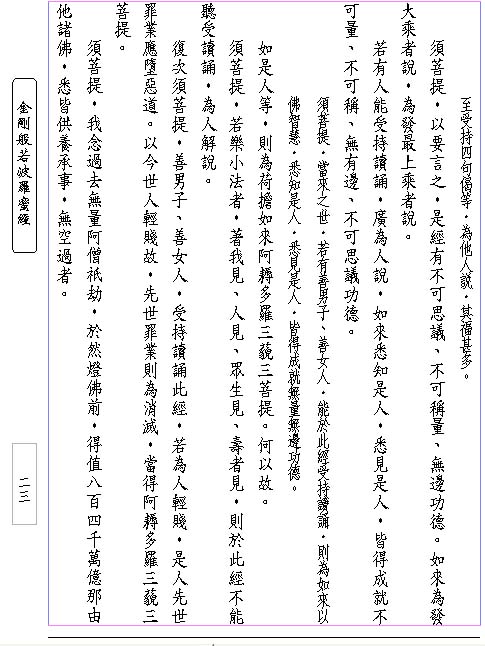 至受持四句偈等，為他人說，其福甚多。
須菩提，以要言之，是經有不可思議、不可稱量、無邊功德。如來為發
大乘者說，為發最上乘者說。
若有人能受持讀誦，廣為人說，如來悉知是人，悉見是人，皆得成就不
可量、不可稱、無有邊、不可思議功德。
須菩提，當來之世，若有善男子、善女人，能於此經受持讀誦，則為如來以
佛智慧，悉知是人，悉見是人，皆得成就無量無邊功德。
如是人等，則為荷擔如來阿耨多羅三藐三菩提。何以故。
須菩提，若樂小法者，著我見、人見、眾生見、壽者見，則於此經不能
聽受讀誦，為人解說。
復次須菩提，善男子、善女人，受持讀誦此經，若為人輕賤，是人先世
罪業應墮惡道。以今世人輕賤故，先世罪業則為消滅，當得阿耨多羅三藐三
菩提。
須菩提，我念過去無量阿僧祇劫，於然燈佛前，得值八百四千萬億那由
他諸佛，悉皆供養承事，無空過者。
金剛般若波羅蜜經
二三